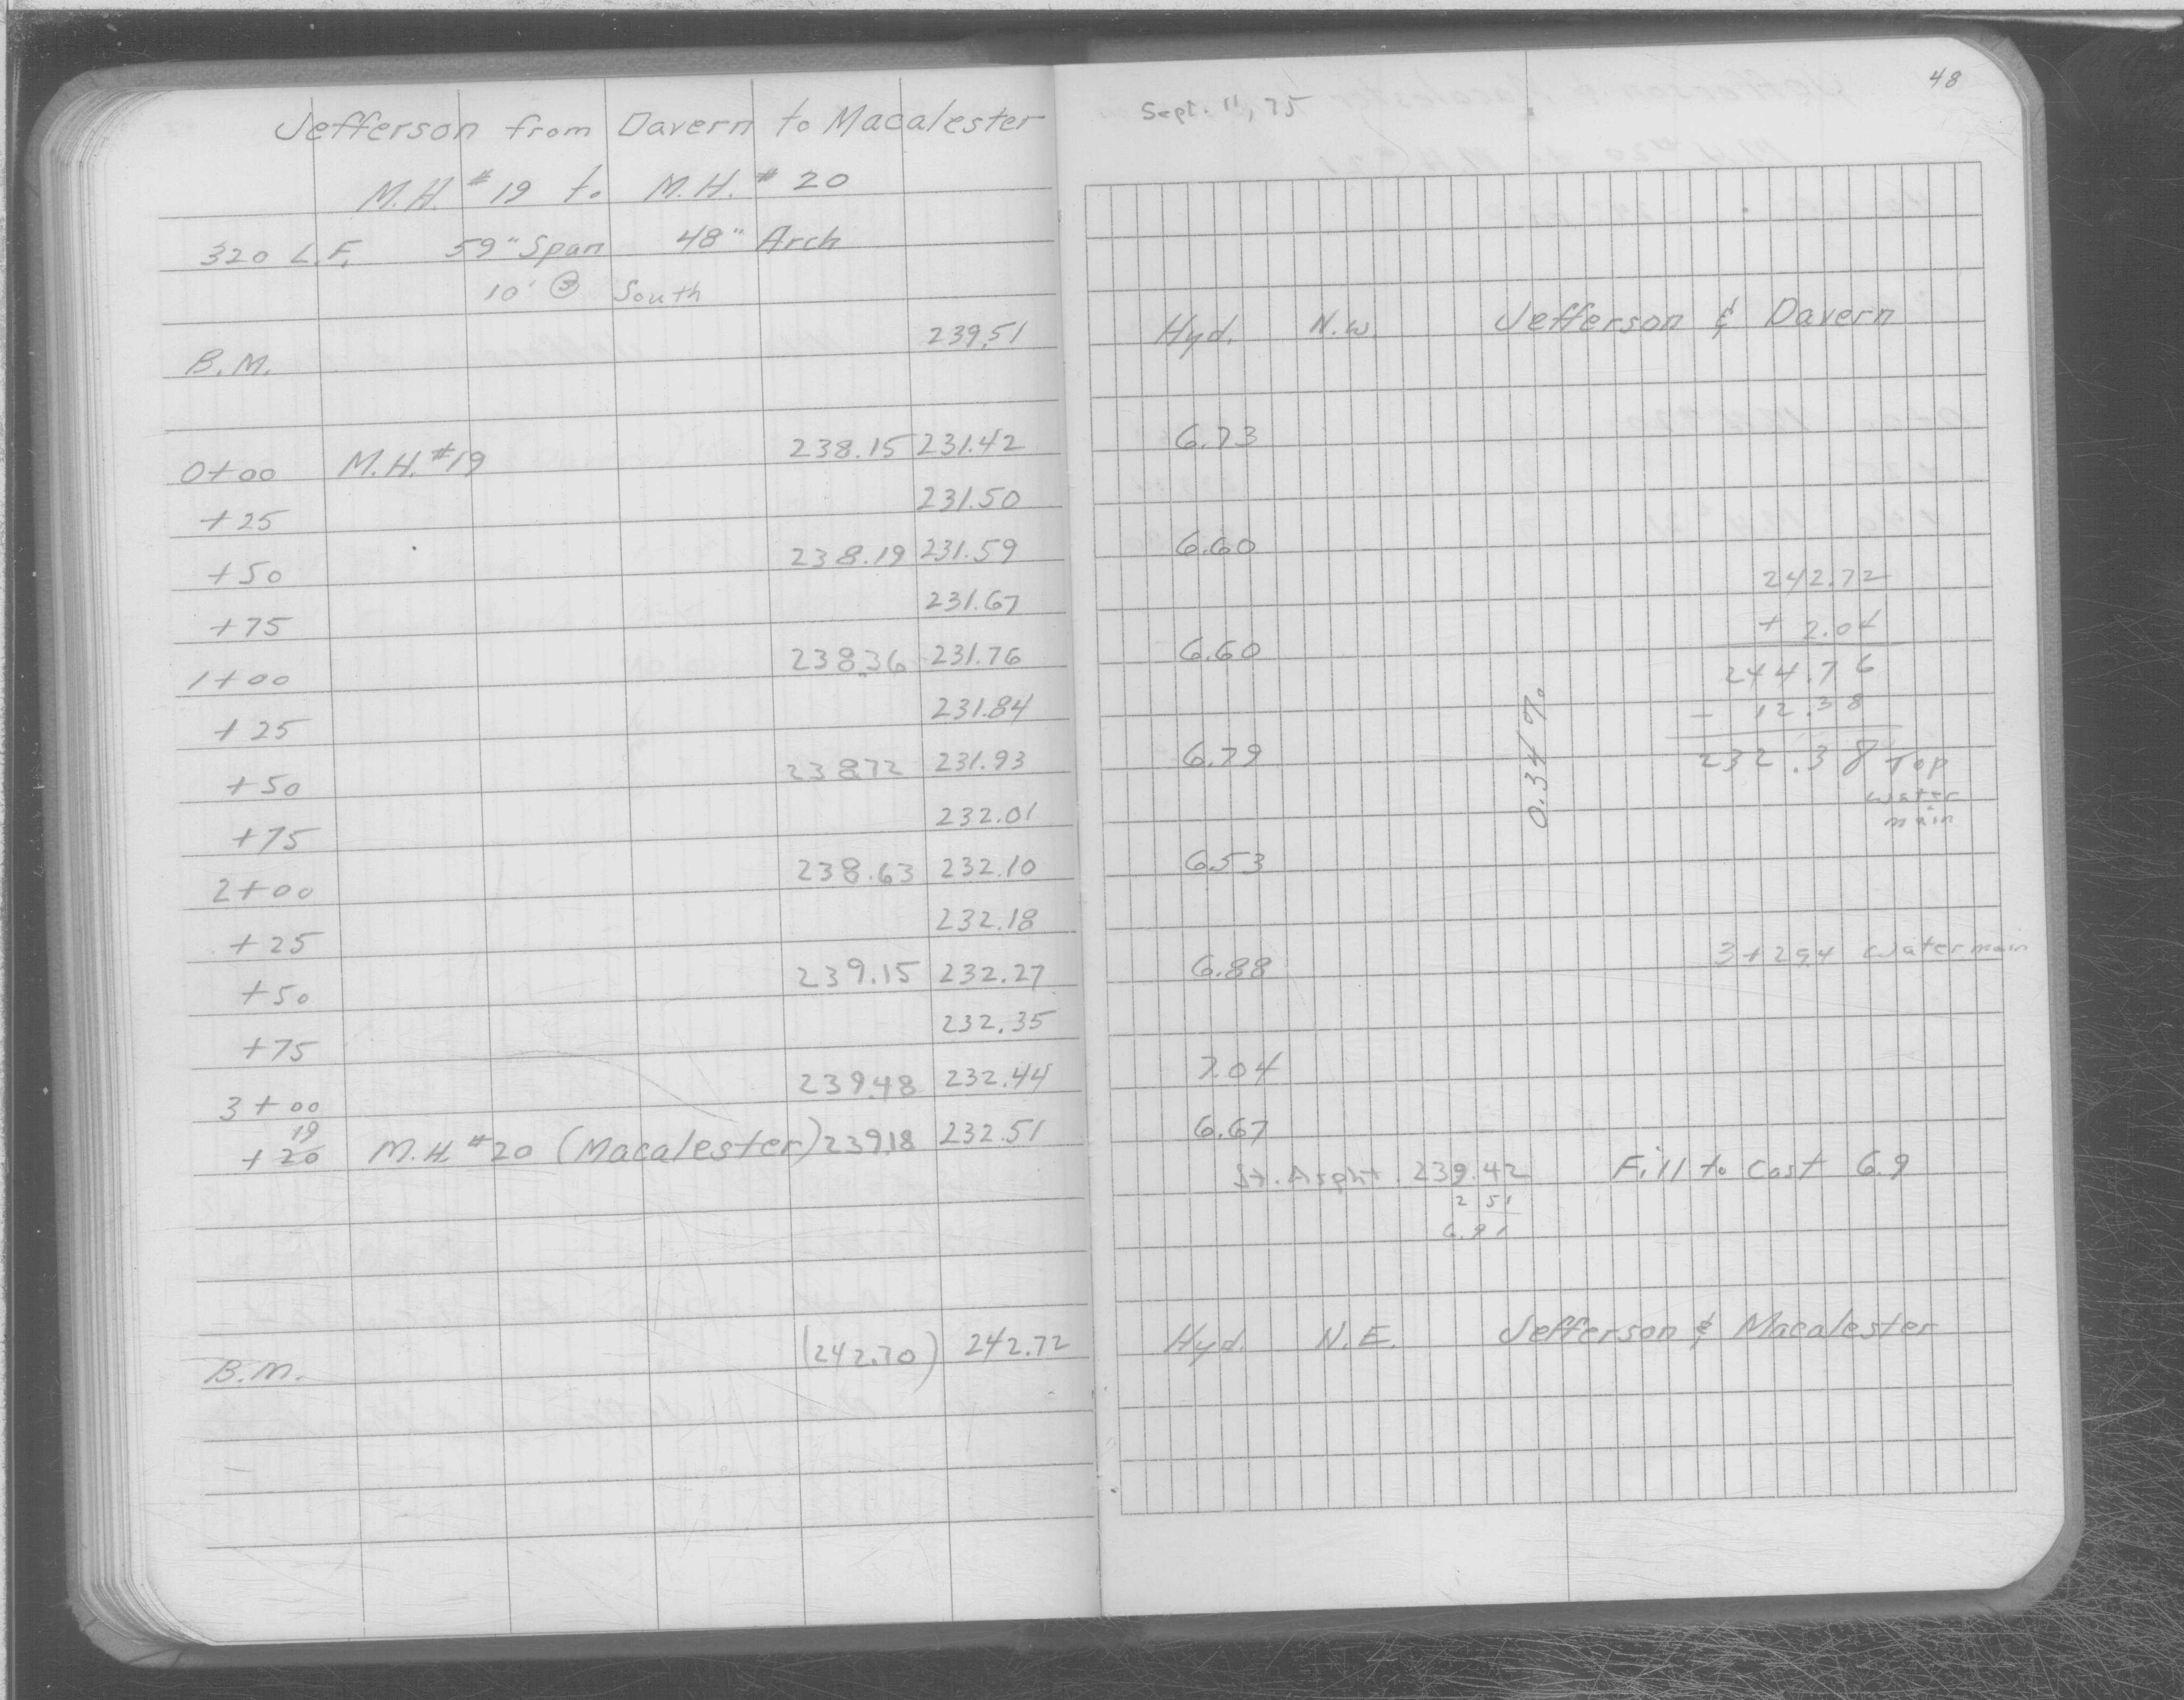 Jefferson from Davern to Macalester
M.H. #19 to M.H. #20
320 L.F. 59" Span 48" Arch
10' South
B.M. 239.51
0+00 M.H. #19 238.15 231.42
+25 231.50
+50 238.19 231.59
+75 231.67
1+00 238.36 231.76
+25 231.84
+50 238.72 231.93
+75 232.01
2+00 238.63 232.10
+25 232.18
+50 239.15 232.27
+75 232.35
3+00 239.48 232.44
19
+20 M.H. #20 (Macalester) 239.18 232.51
B.M. (242.70) 242.72
48
Sept. 11, 75
Hyd. N.W. Jefferson & Davern
6.73
6.60
242.72
+ 2.04
6.60
244.76
- 12.38
0.34%
6.79
232.38 Top
water
main
6.53
3+29.4 Watermain
6.88
7.04
6.67
St. Aspht. 239.42 Fill to Cast 6.9
2 51
6.91
Hyd. N.E. Jefferson & Macalester